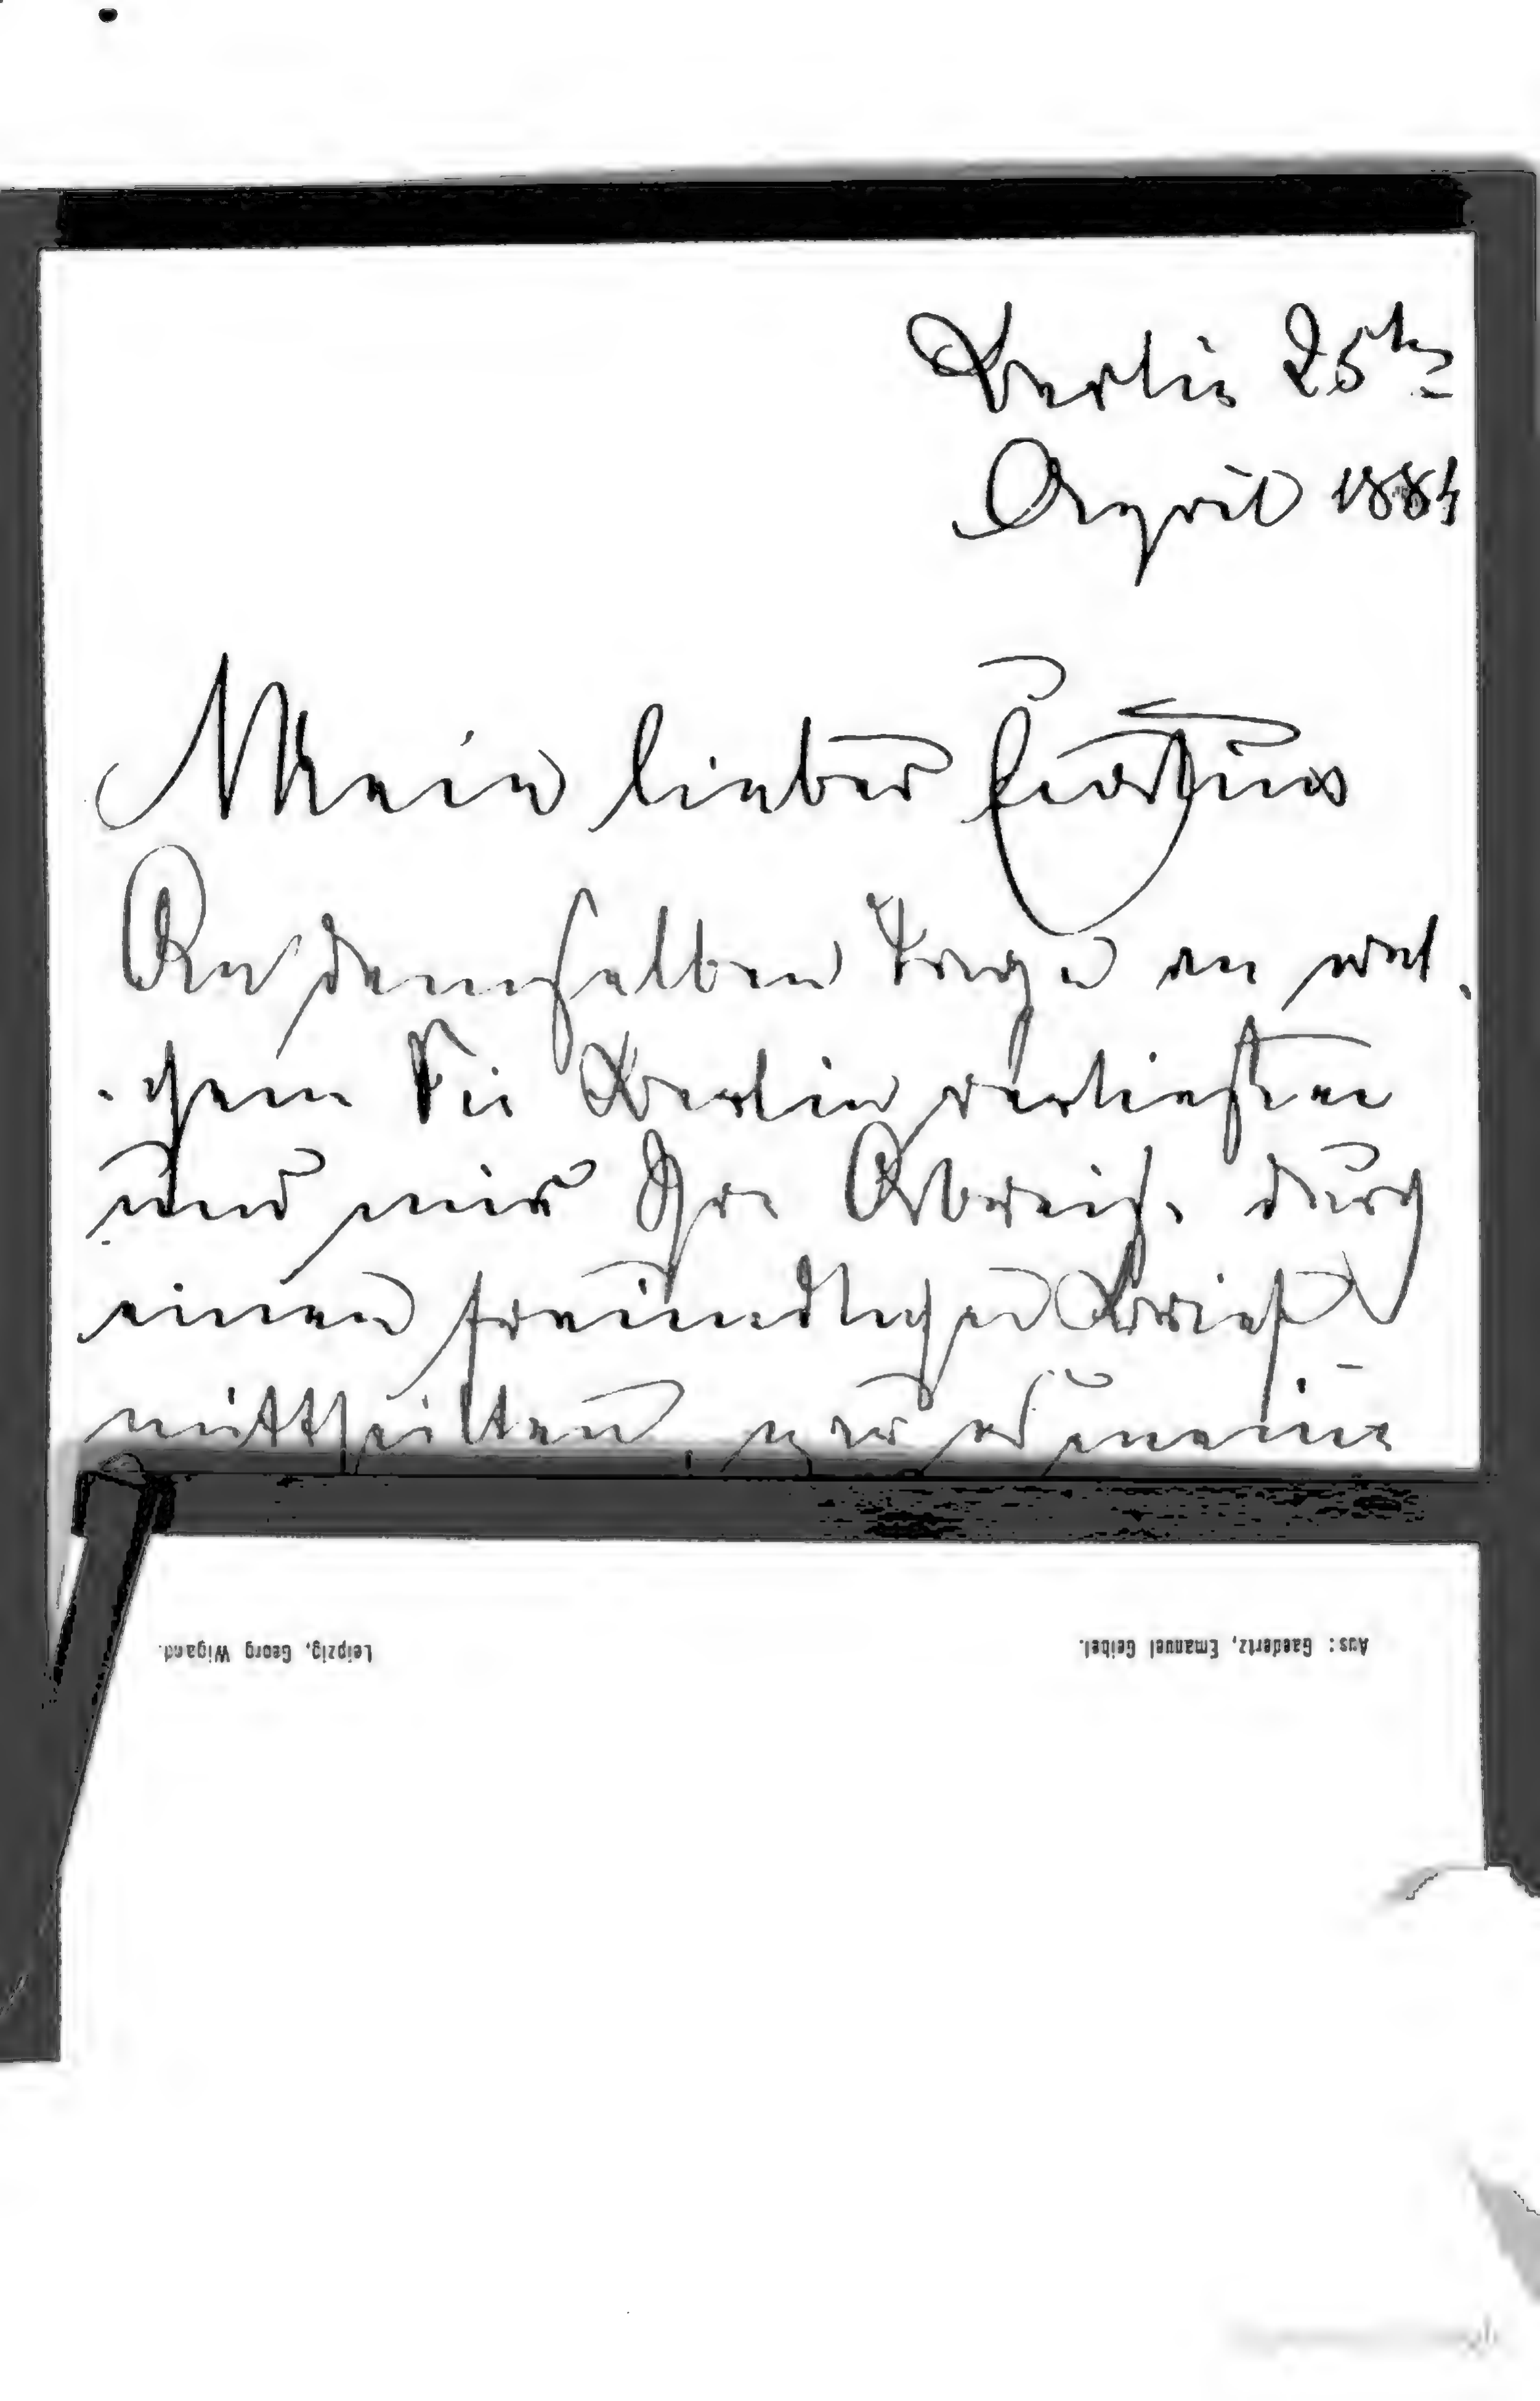 Berlin 25ten
April 1884
Mein lieber Curtius
An demselben Tage an wel-
-chem Sie Berlin verließen
und mir Ihre Abreise durch
einen freundlichen Brief
mittheilten, war es meine
Aus: Gaedertz, Emanuel Geibel.
Leipzig, Georg Wigand.